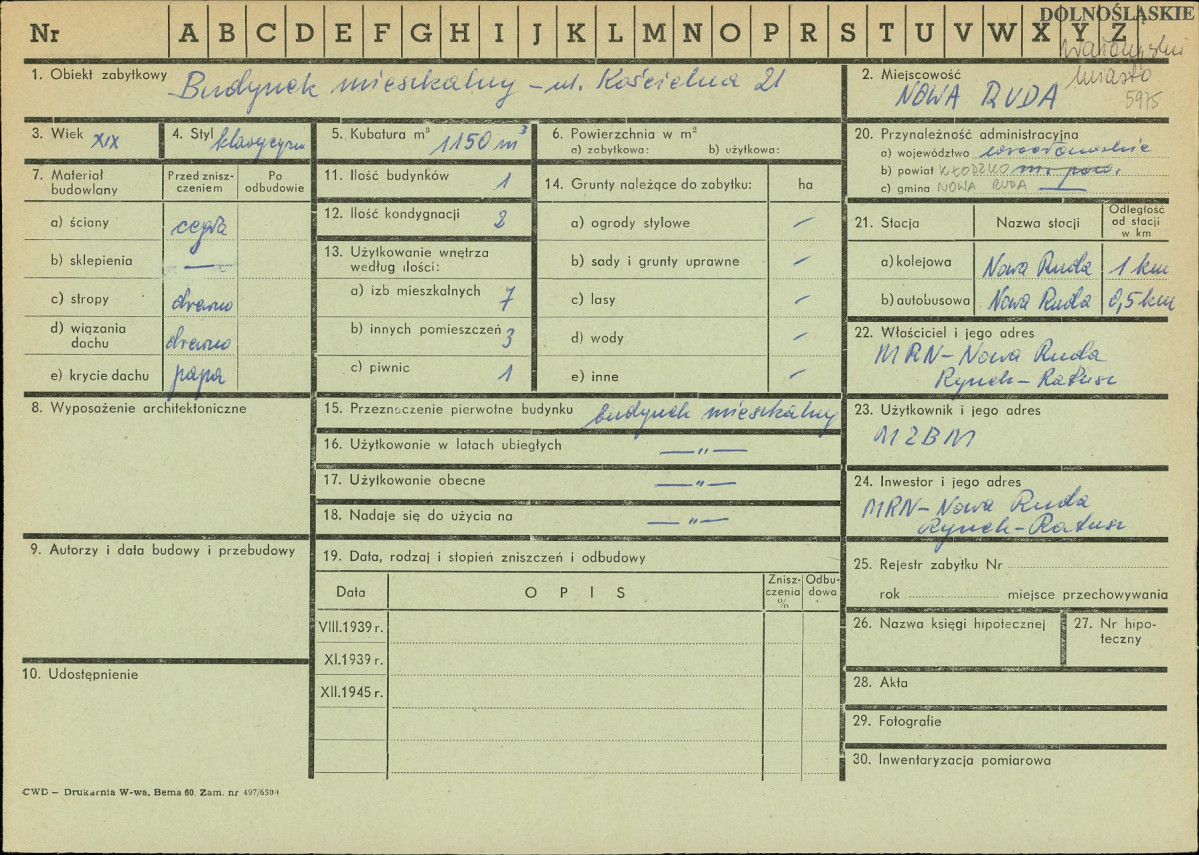 DOLNOŚLĄSKIE
Nr A B C D E F G H I J K L M N O P R S T U V W X Y Z
miasto
5975
1. Obiekt zabytkowy Budynek mieszkalny – ul. Kościelna 21
2. Miejscowość
NOWA RUDA
3. Wiek XIX
4. Styl klasycyzm
5. Kubatura m³ 1150 m³
6. Powierzchnia w m²
a) zabytkowa: b) użytkowa:
7. Materiał budowlany
Przed znisz-
czeniem
Po
odbudowie
a) ściany cegła
b) sklepienia —
c) stropy drewno
d) wiązania
dachu drewno
e) krycie dachu papa
8. Wyposażenie architektoniczne
9. Autorzy i data budowy i przebudowy
10. Udostępnienie
11. Ilość budynków 1
12. Ilość kondygnacji 2
13. Użytkowanie wnętrza
według ilości:
a) izb mieszkalnych 7
b) innych pomieszczeń 3
c) piwnic 1
14. Grunty należące do zabytku: ha
a) ogrody stylowe –
b) sady i grunty uprawne –
c) lasy –
d) wody –
e) inne –
15. Przeznaczenie pierwotne budynku budynek mieszkalny
16. Użytkowanie w latach ubiegłych —„—
17. Użytkowanie obecne —„—
18. Nadaje się do użycia na —„—
19. Data, rodzaj i stopień zniszczeń i odbudowy
Data
OPIS
Znisz-
czenia
%
Odbu-
dowa
VIII.1939 r.
XI.1939 r.
XII.1945 r.
20. Przynależność administracyjna
a) województwo wrocławskie
b) powiat KŁODZKO m. pow.
c) gmina NOWA RUDA —
21. Stacja
Nazwa stacji
Odległość
od stacji
w km
a) kolejowa Nowa Ruda 1 km
b) autobusowa Nowa Ruda 0,5 km
22. Właściciel i jego adres
MRN – Nowa Ruda
Rynek – Ratusz
23. Użytkownik i jego adres
MZBM
24. Inwestor i jego adres
MRN – Nowa Ruda
Rynek – Ratusz
25. Rejestr zabytku Nr
rok miejsce przechowywania
26. Nazwa księgi hipotecznej
27. Nr hipo-
teczny
28. Akta
29. Fotografie
30. Inwentaryzacja pomiarowa
CWD – Drukarnia W-wa, Bema 60. Zam. nr 497/6500